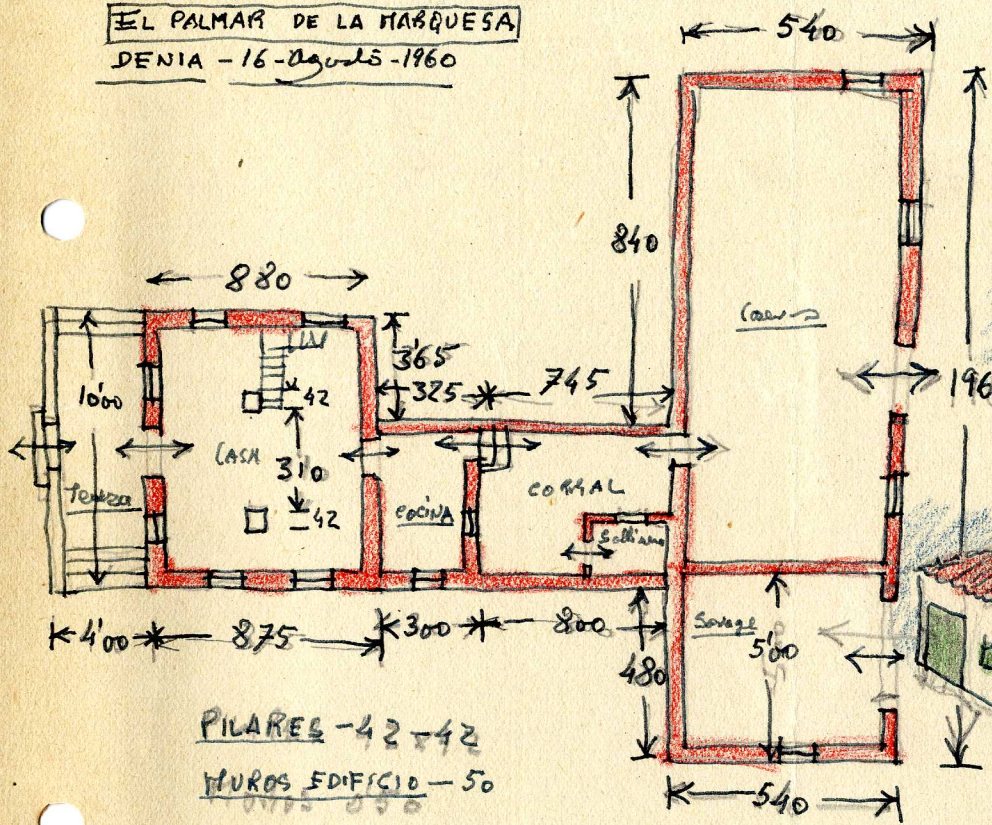 EL PALMAR DE LA MARQUESA
DENIA - 16 - Agosto - 1960
540
840
880
365
325
745
196
10'00
42
CASA
310
42
Terraza
COCINA
CORRAL
Gallinero
4'00
875
300
800
480
Garage
5'00
540
PILARES - 42 - 42
MUROS EDIFICIO - 50